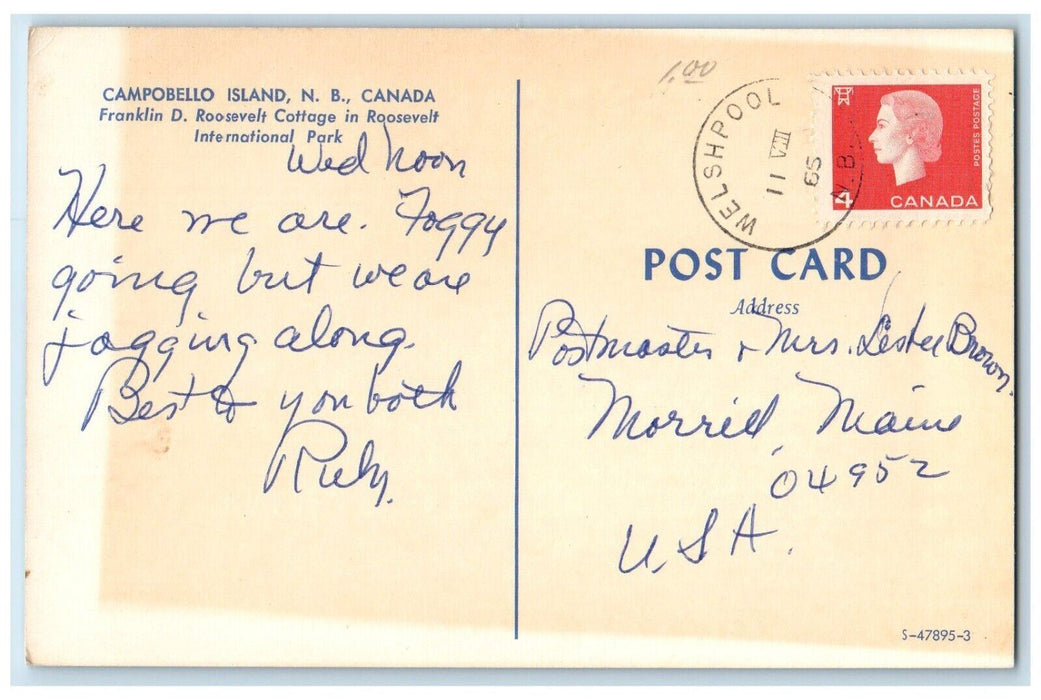 CAMPOBELLO ISLAND, N. B., CANADA
Franklin D. Roosevelt Cottage in Roosevelt
International Park
Wed noon
Here we are. Foggy
going but we are
jogging along.
Best to you both
Ruby.
1.00
WELSHPOOL
11 VIII
65
N.B.
POSTES POSTAGE
4
CANADA
POST CARD
Address
Postmaster & Mrs. Lester Brown.
Morrill, Maine
04952
U.S.A.
S-47895-3